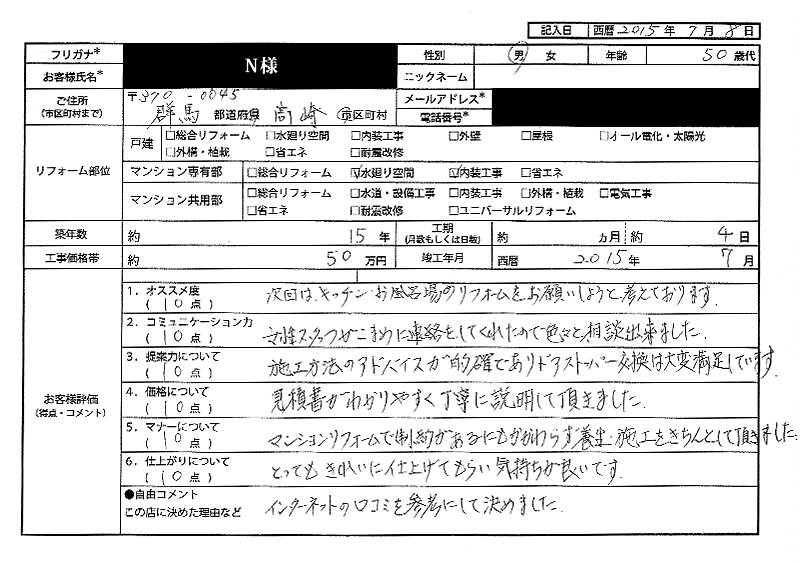 記入日 西暦 2015年 7月 8日
フリガナ* N様 性別 男 女 年齢 50歳代
お客様氏名* ニックネーム
ご住所 (市区町村まで) 〒370-0045 群馬 都道府県 高崎 市区町村 メールアドレス* 電話番号*
リフォーム部位 戸建 □総合リフォーム □水廻り空間 □内装工事 □外壁 □屋根 □オール電化・太陽光
□外構・植栽 □省エネ □耐震改修
マンション専有部 □総合リフォーム ☑水廻り空間 ☑内装工事 □省エネ
マンション共用部 □総合リフォーム □水道・設備工事 □内装工事 □外構・植栽 □電気工事
□省エネ □耐震改修 □ユニバーサルリフォーム
築年数 約 15年 工期 (月数もしくは日数) 約 カ月 約 4日
工事価格帯 約 50万円 竣工年月 西暦 2015年 7月
お客様評価 (得点・コメント)
1. オススメ度 (10点) 次回は、キッチン・お風呂場のリフォームをお願いしようと考えております。
2. コミュニケーション力 (10点) 女性スタッフがこまめに連絡をしてくれたので色々と相談出来ました。
3. 提案力について (10点) 施工方法のアドバイスが的確でありドアストッパー交換は大変満足しています。
4. 価格について (10点) 見積書がわかりやすく丁寧に説明して頂きました。
5. マナーについて (10点) マンションリフォームで制約があるにもかかわらず養生・施工をきちんとして頂きました。
6. 仕上がりについて (10点) とってもきれいに仕上げてもらい気持ちが良いです。
●自由コメント この店に決めた理由など インターネットの口コミを参考にして決めました。